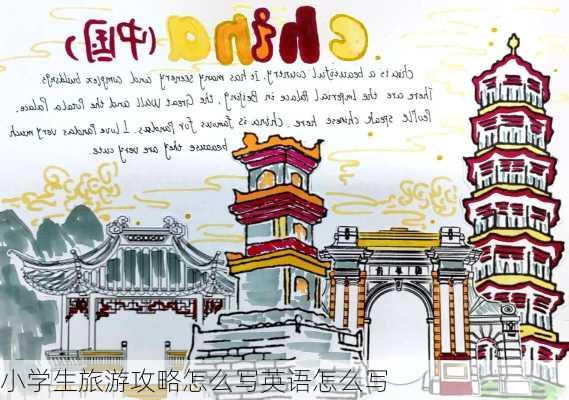 china（中国）
chia is a beautiful country. It has many scenery and complex buildings.
There are the Imperial Palace in Beijing, the Great Wall and the Potala Palace.
speak chinese here. china is famous for Pandas. I love Pandas very much
beacause they are very cute.
小学生旅游攻略怎么写英语怎么写